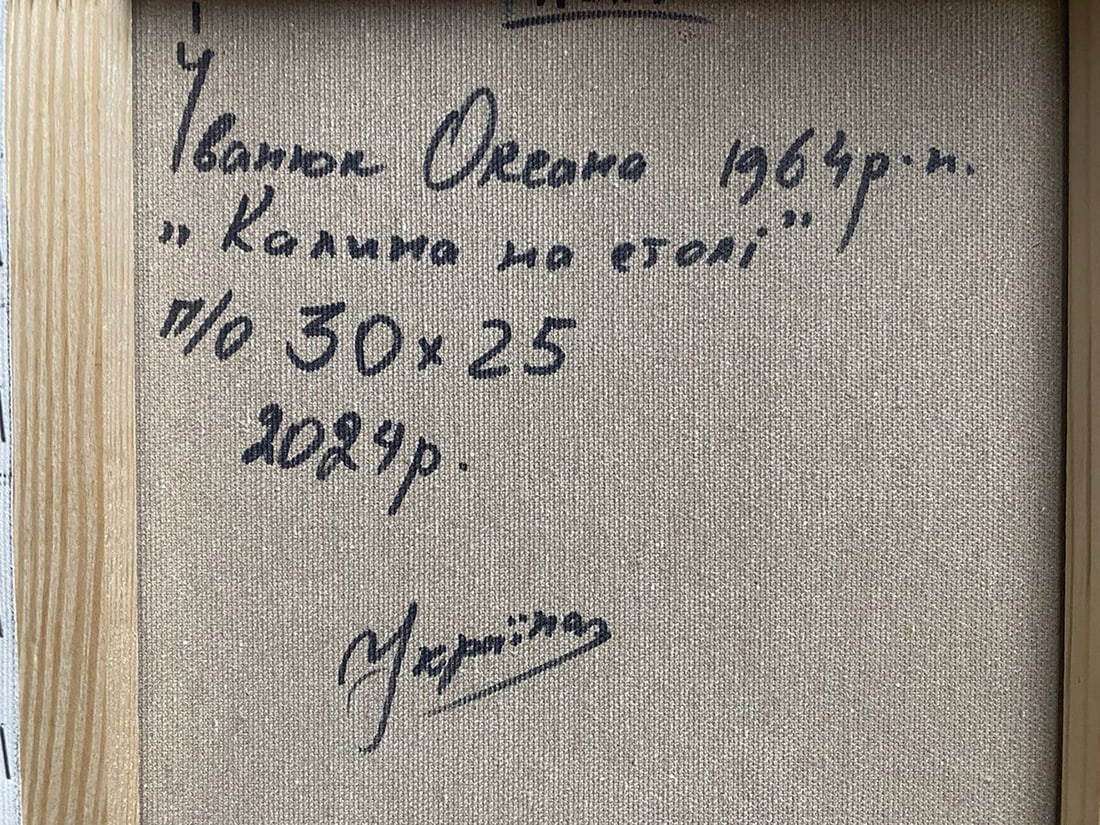 Іванюк Оксана 1964р.н.
„Калина на столі"
п/о 30х25
2024р.
Україна